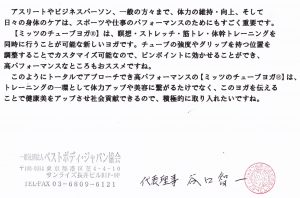 アスリートやビジネスパーソン、一般の方々まで、体力の維持・向上、そして
日々の身体のケアは、スポーツや仕事のパフォーマンスのためにもすごく重要です。
【ミッツのチューブヨガ®】は、瞑想・ストレッチ・筋トレ・体幹トレーニングを
同時に行うことが可能な新しいヨガです。チューブの強度やグリップを持つ位置を
調整することでカスタマイズ可能なので、ピンポイントに効かせることができ、
高パフォーマンスなところもおススメですね。
このようにトータルでアプローチでき高パフォーマンスの【ミッツのチューブヨガ®】は、
トレーニングの一環として体力アップや美容に繋がるだけでなく、このヨガを伝える
ことで健康美をアップさせ社会貢献できるので、積極的に取り入れたいですね。
一般社団法人ベストボディ・ジャパン協会
東京都港区芝4-4-10
サンライズ長井ビル
TEL・FAX 03-6809-6121
代表理事 谷口智一